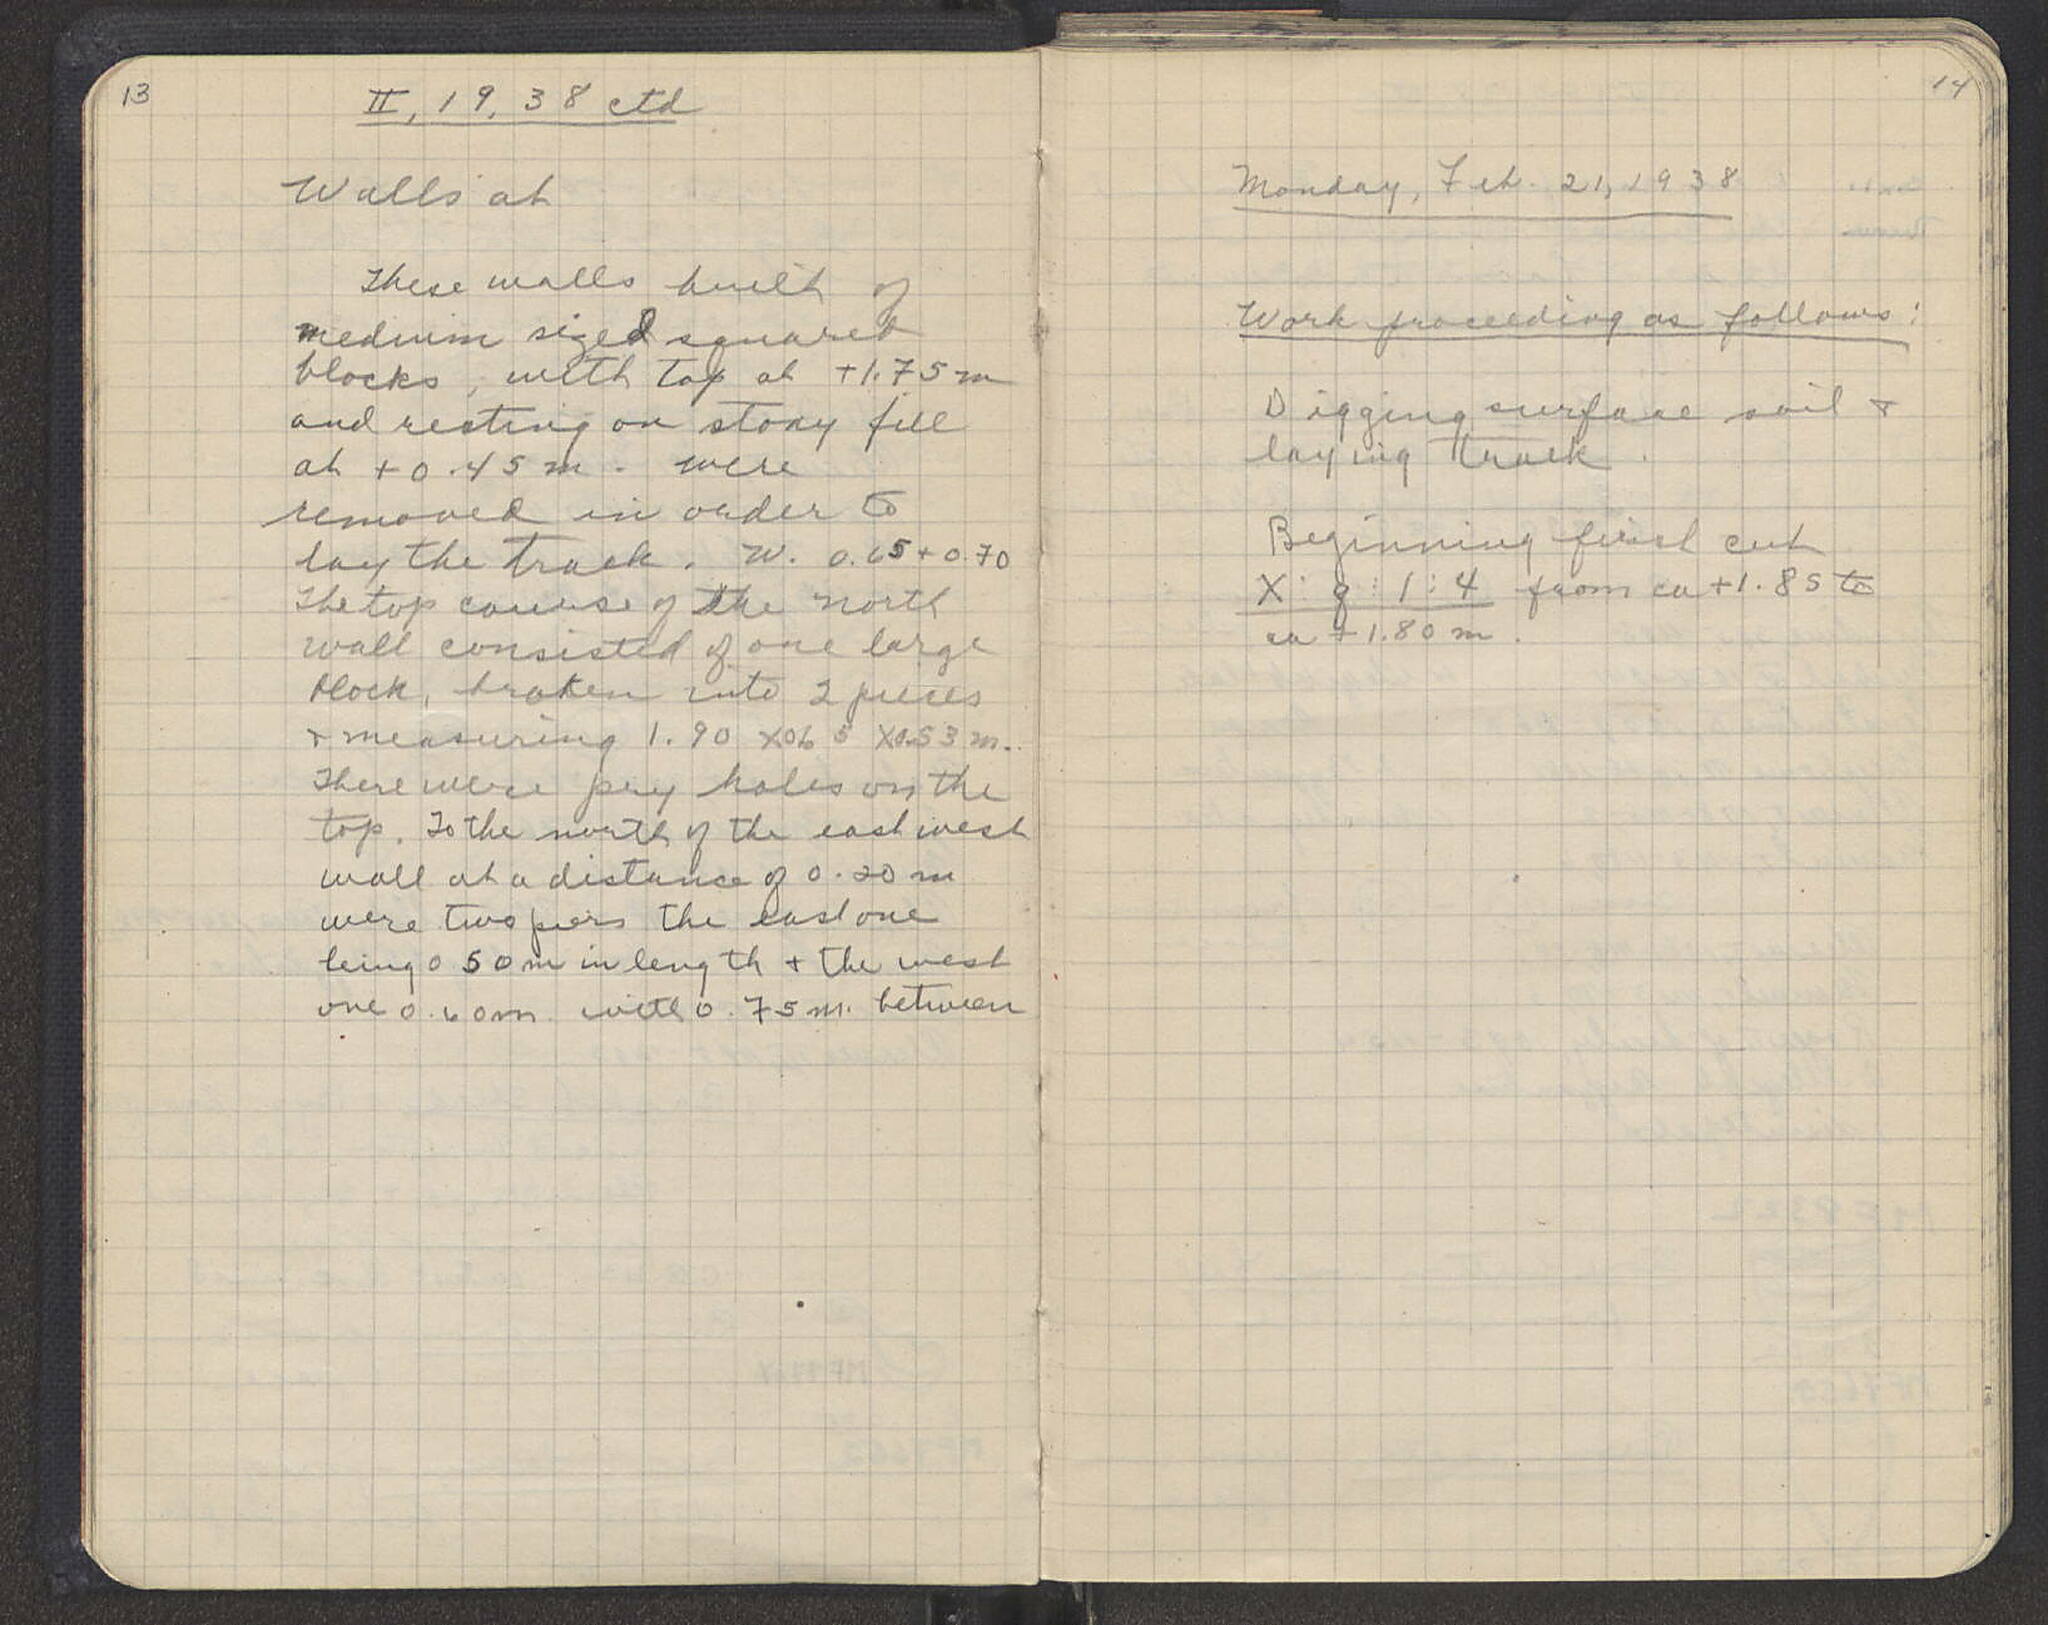 13
II, 19, 38 ctd
Walls at
These walls built of
medium sized squared
blocks, with top at +1.75 m
and resting on stony fill
at +0.45 m. were
removed in order to
lay the track. W. 0.65 + 0.70
The top course of the north
wall consisted of one large
block, broken into 2 pieces
+ measuring 1.90 x 0.65 x 0.53 m.
There were pry holes on the
top. To the north of the east west
wall at a distance of 0.20 m
were two piers the east one
being 0.50 m in length + the west
one 0.60 m. with 0.75 m. between
14
Monday, Feb. 21, 1938
Work proceeding as follows:
Digging surface soil +
laying track.
Beginning first cut
X: g: 1:4 from ca +1.85 to
ca +1.80 m.